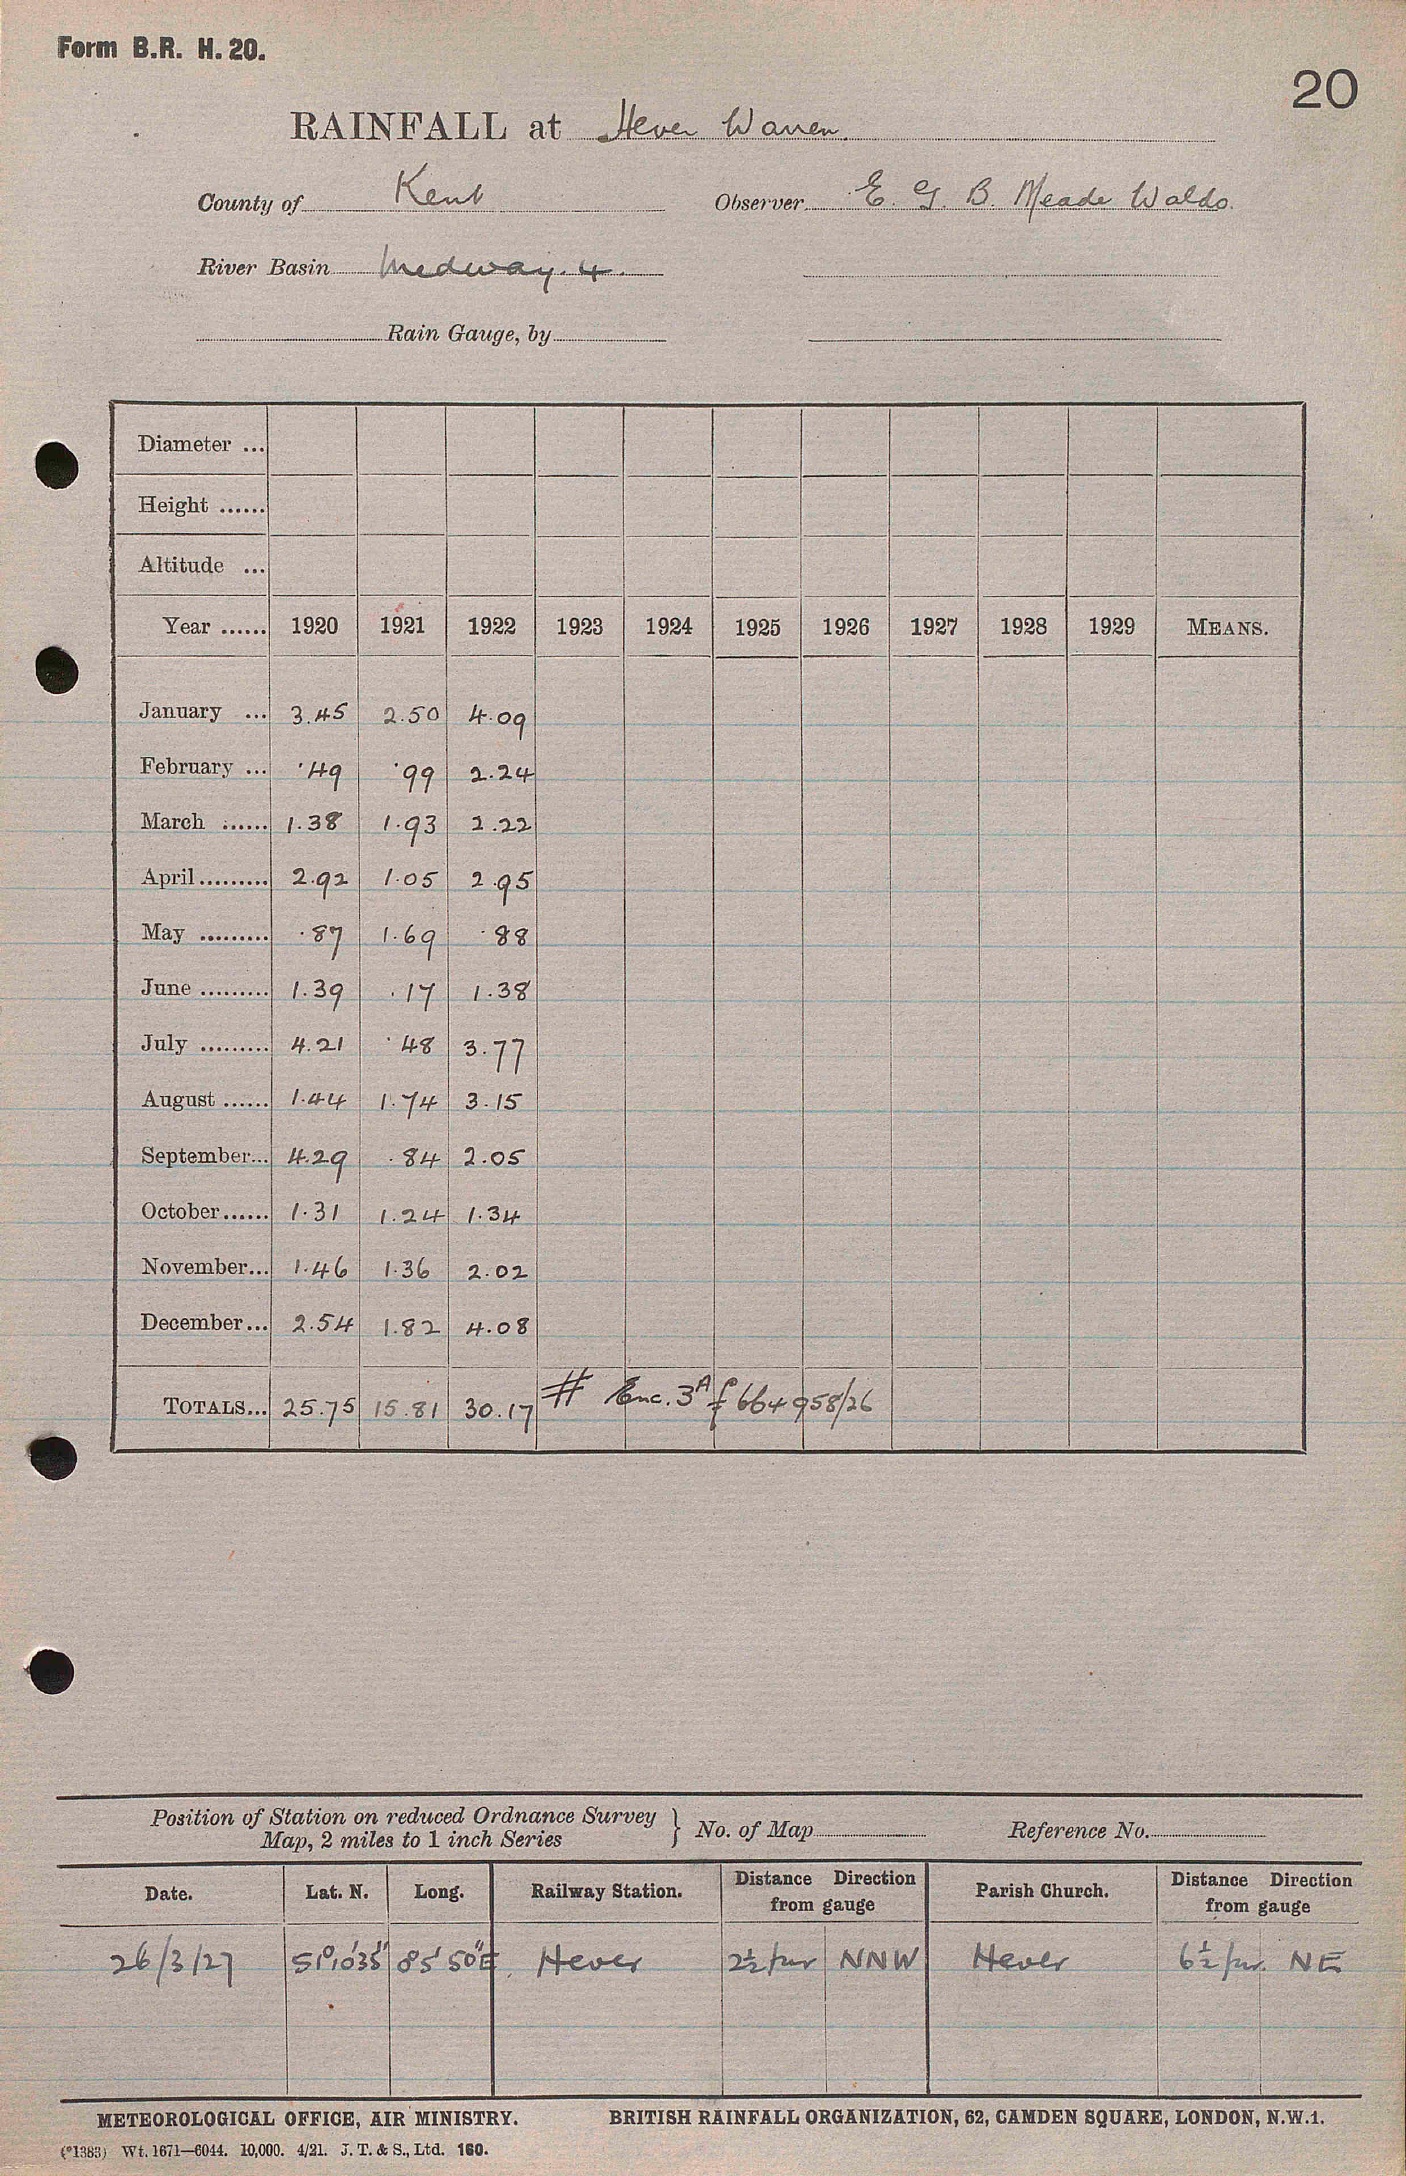 Form B.R. H. 20.
20
RAINFALL at Hever Warren.
County of Kent Observer E. G. B. Meade Waldo.
River Basin Medway. 4.
Rain Gauge, by
Diameter ...
Height ......
Altitude ...
Year ...... 1920 1921 1922 1923 1924 1925 1926 1927 1928 1929 MEANS.
January ... 3.45 2.50 4.09
February ... .49 .99 2.24
March ...... 1.38 1.93 2.22
April ......... 2.92 1.05 2.95
May ......... .87 1.69 .88
June ......... 1.39 .17 1.38
July ......... 4.21 .48 3.77
August ...... 1.44 1.74 3.15
September... 4.29 .84 2.05
October...... 1.31 1.24 1.34
November... 1.46 1.36 2.02
December... 2.54 1.82 4.08
TOTALS... 25.75 15.81 30.17 # Enc. 3A f 664958/26
Position of Station on reduced Ordnance Survey
Map, 2 miles to 1 inch Series } No. of Map Reference No.
Date. Lat. N. Long. Railway Station. Distance Direction from gauge Parish Church. Distance Direction from gauge
26/3/27 51°10'35" 0°5'50"E Hever 2½ fur NNW Hever 6½ fur. NE
METEOROLOGICAL OFFICE, AIR MINISTRY. BRITISH RAINFALL ORGANIZATION, 62, CAMDEN SQUARE, LONDON, N.W.1.
(*1383) Wt. 1671—6044. 10,000. 4/21. J. T. & S., Ltd. 160.